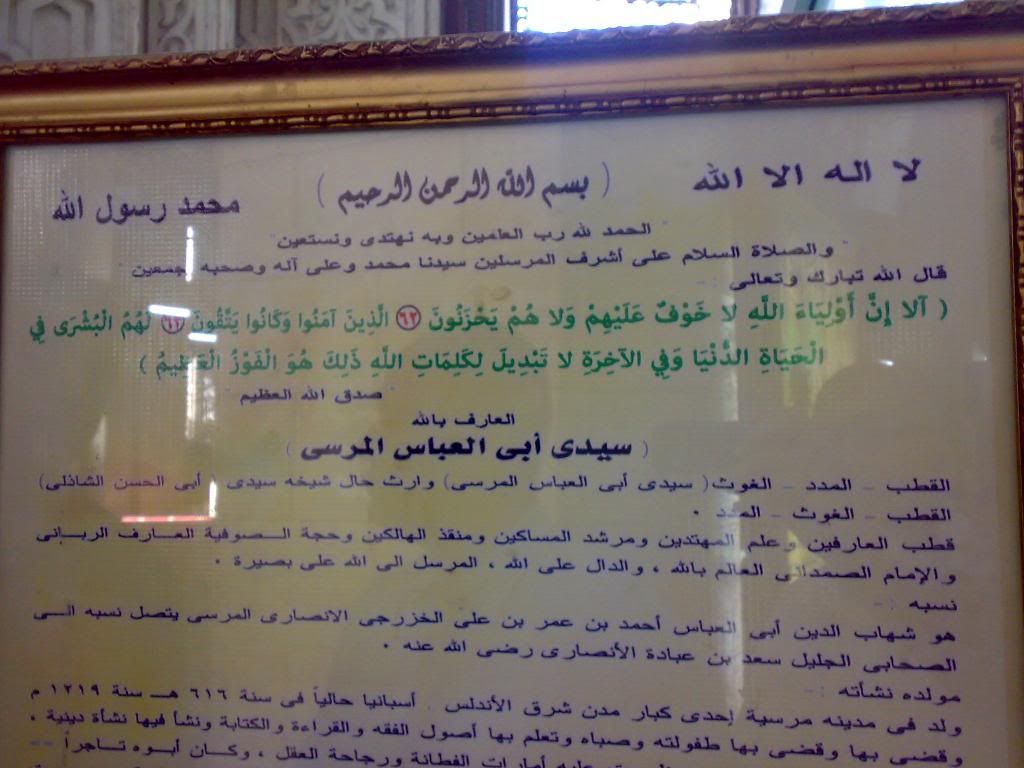 لا اله الا الله
( بسم الله الرحمن الرحيم )
محمد رسول الله
" الحمد لله رب العلمين وبه نهتدى ونستعين "
" والصلاة السلام على أشرف المرسلين سيدنا محمد وعلى آله وصحبه أجمعين "
قال الله تبارك وتعالى :-
( آلا إِنَّ أَوْلِيَاءَ اللَّهِ لا خَوْفٌ عَلَيْهِمْ وَلا هُمْ يَحْزَنُونَ ٦٢ الَّذِينَ آمَنُوا وَكَانُوا يَتَّقُونَ ٦٣ لَهُمُ الْبُشْرَى فِي
الْحَيَاةِ الدُّنْيَا وَفِي الآخِرَةِ لا تَبْدِيلَ لِكَلِمَاتِ اللَّهِ ذَلِكَ هُوَ الْفَوْزُ الْعَظِيمُ )
" صدق الله العظيم "
العارف بالله
( سيدى أبى العباس المرسى )
القطب - المدد - الغوث ( سيدى أبى العباس المرسى ) وارث حال شيخه سيدى ( أبى الحسن الشاذلى )
القطب - الغوث - المدد .
قطب العارفين وعلم المهتدين ومرشد المساكين ومنقذ الهالكين وحجة الصوفية العارف الربانى
والإمام الصمدانى العالم بالله ، والدال على الله ، المرسل الى الله على بصيرة .
نسبه :-
هو شهاب الدين أبى العباس أحمد بن عمر بن على الخزرجى الانصارى المرسى يتصل نسبه الى
الصحابى الجليل سعد بن عبادة الأنصارى رضى الله عنه .
مولده نشأته :-
ولد فى مدينه مرسية إحدى كبار مدن شرق الأندلس . أسبانيا حالياً فى سنة ٦١٦ هـ سنة ١٢١٩ م
وقضى بها وقضى بها طفولته وصباه وتعلم بها أصول الفقه والقراءة والكتابة ونشأ فيها نشأة دينية .
عليه أمارات الفطانة ورجاحة العقل ، وكان أبوه تاجراً